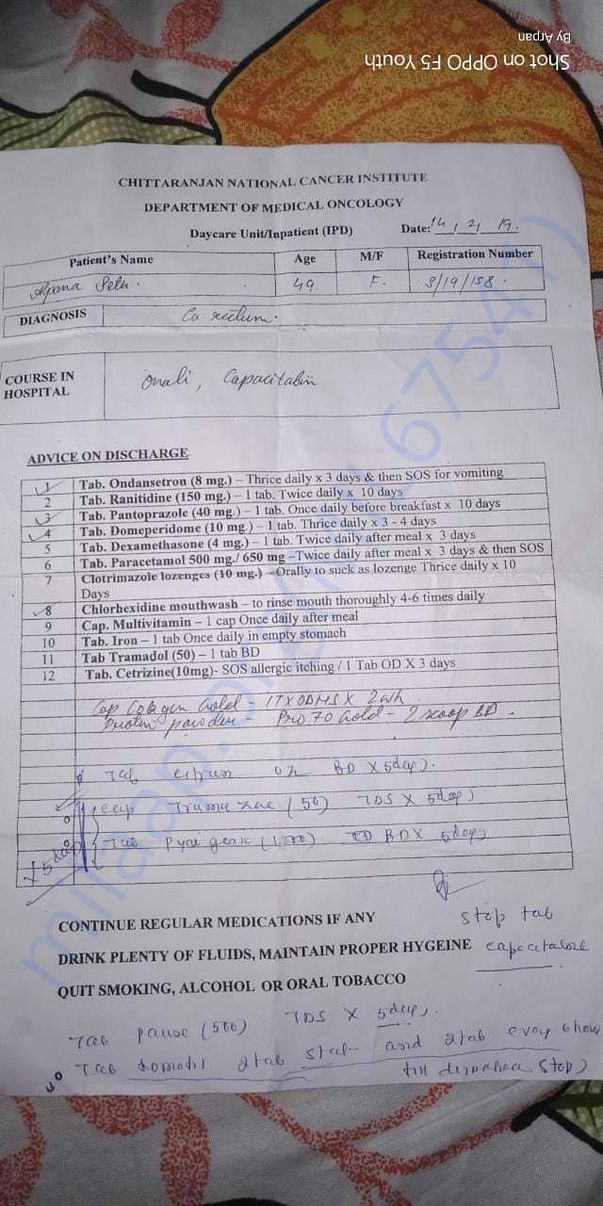 Shot on OPPO F5 Youth
By Arpan
CHITTARANJAN NATIONAL CANCER INSTITUTE
DEPARTMENT OF MEDICAL ONCOLOGY
Daycare Unit/Inpatient (IPD) Date: 14/2/19.
Patient's Name Age M/F Registration Number
49 F. S/19/158.
DIAGNOSIS Ca rectum.
COURSE IN HOSPITAL Onali, Capacitabin
ADVICE ON DISCHARGE
1 Tab. Ondansetron (8 mg.) – Thrice daily x 3 days & then SOS for vomiting
2 Tab. Ranitidine (150 mg.) – 1 tab. Twice daily x 10 days
3 Tab. Pantoprazole (40 mg.) – 1 tab. Once daily before breakfast x 10 days
4 Tab. Domeperidome (10 mg.) – 1 tab. Thrice daily x 3 - 4 days
5 Tab. Dexamethasone (4 mg.) – 1 tab. Twice daily after meal x 3 days
6 Tab. Paracetamol 500 mg./ 650 mg –Twice daily after meal x 3 days & then SOS
7 Clotrimazole lozenges (10 mg.) –Orally to suck as lozenge Thrice daily x 10
Days
8 Chlorhexidine mouthwash – to rinse mouth thoroughly 4-6 times daily
9 Cap. Multivitamin – 1 cap Once daily after meal
10 Tab. Iron – 1 tab Once daily in empty stomach
11 Tab Tramadol (50) – 1 tab BD
12 Tab. Cetrizine(10mg)- SOS allergic itching / 1 Tab OD X 3 days
Gold - X 2wk.
Protein powder - Pro 70 Gold - 2 scoop BD -
Tab oz BD X 5days.
Cap (50) TDS X 5days
Tab BD X 5days
X 5days
CONTINUE REGULAR MEDICATIONS IF ANY stop tab
DRINK PLENTY OF FLUIDS, MAINTAIN PROPER HYGEINE
QUIT SMOKING, ALCOHOL OR ORAL TOBACCO
Tab pause (500) TDS X 5days.
Tab 2tab stat- and 2tab every
till stop)